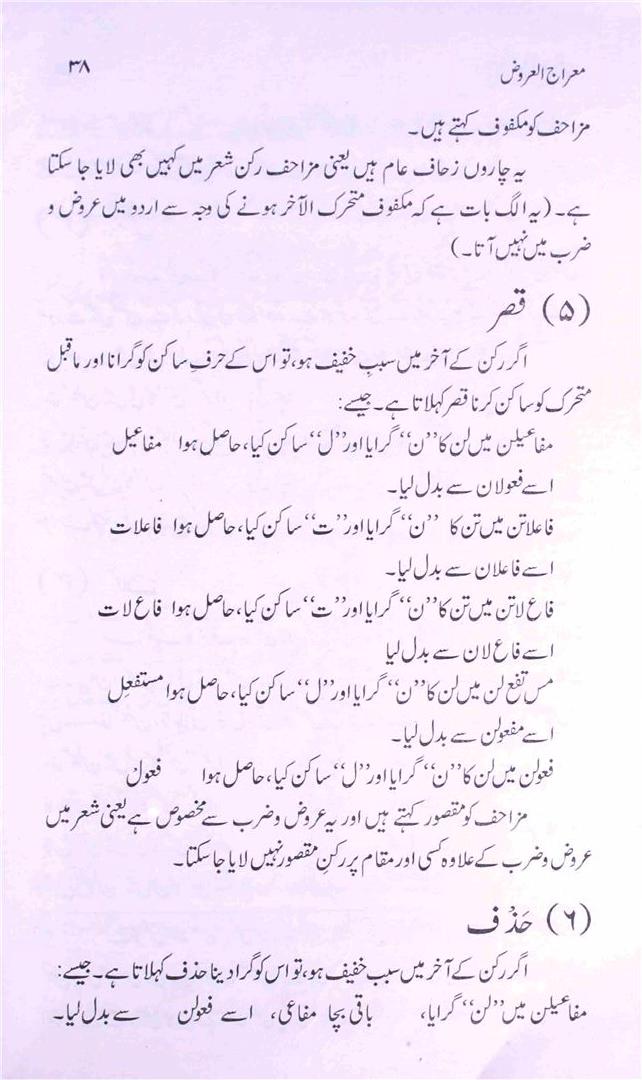 معراج العروض ۳۸
مزاحف کو مکفوف کہتے ہیں۔
یہ چاروں زحاف عام ہیں یعنی مزاحف رکن شعر میں کہیں بھی لایا جا سکتا
ہے۔ (یہ الگ بات ہے کہ مکفوف متحرک الآخر ہونے کی وجہ سے اردو میں عروض و
ضرب میں نہیں آتا۔)
(۵) قصر
اگر رکن کے آخر میں سببِ خفیف ہو، تو اس کے حرفِ ساکن کو گرانا اور ماقبل
متحرک کو ساکن کرنا قصر کہلاتا ہے۔ جیسے:
مفاعیلن میں لن کا ’’ن‘‘ گرایا اور ’’ل‘‘ ساکن کیا، حاصل ہوا مفاعیل
اسے فعولان سے بدل لیا۔
فاعلاتن میں تن کا ’’ن‘‘ گرایا اور ’’ت‘‘ ساکن کیا، حاصل ہوا فاعلات
اسے فاعلان سے بدل لیا۔
فاع لاتن میں تن کا ’’ن‘‘ گرایا اور ’’ت‘‘ ساکن کیا، حاصل ہوا فاع لات
اسے فاع لان سے بدل لیا
مس تفع لن میں لن کا ’’ن‘‘ گرایا اور ’’ل‘‘ ساکن کیا، حاصل ہوا مستفعِل
اسے مفعولن سے بدل لیا۔
فعولن میں لن کا ’’ن‘‘ گرایا اور ’’ل‘‘ ساکن کیا، حاصل ہوا فعول
مزاحف کو مقصور کہتے ہیں اور یہ عروض و ضرب سے مخصوص ہے یعنی شعر میں
عروض و ضرب کے علاوہ کسی اور مقام پر رکنِ مقصور نہیں لایا جا سکتا۔
(۶) حَذْف
اگر رکن کے آخر میں سبب خفیف ہو، تو اس کو گرا دینا حذف کہلاتا ہے۔ جیسے:
مفاعیلن میں ’’لن‘‘ گرایا، باقی بچا مفاعی، اسے فعولن سے بدل لیا۔